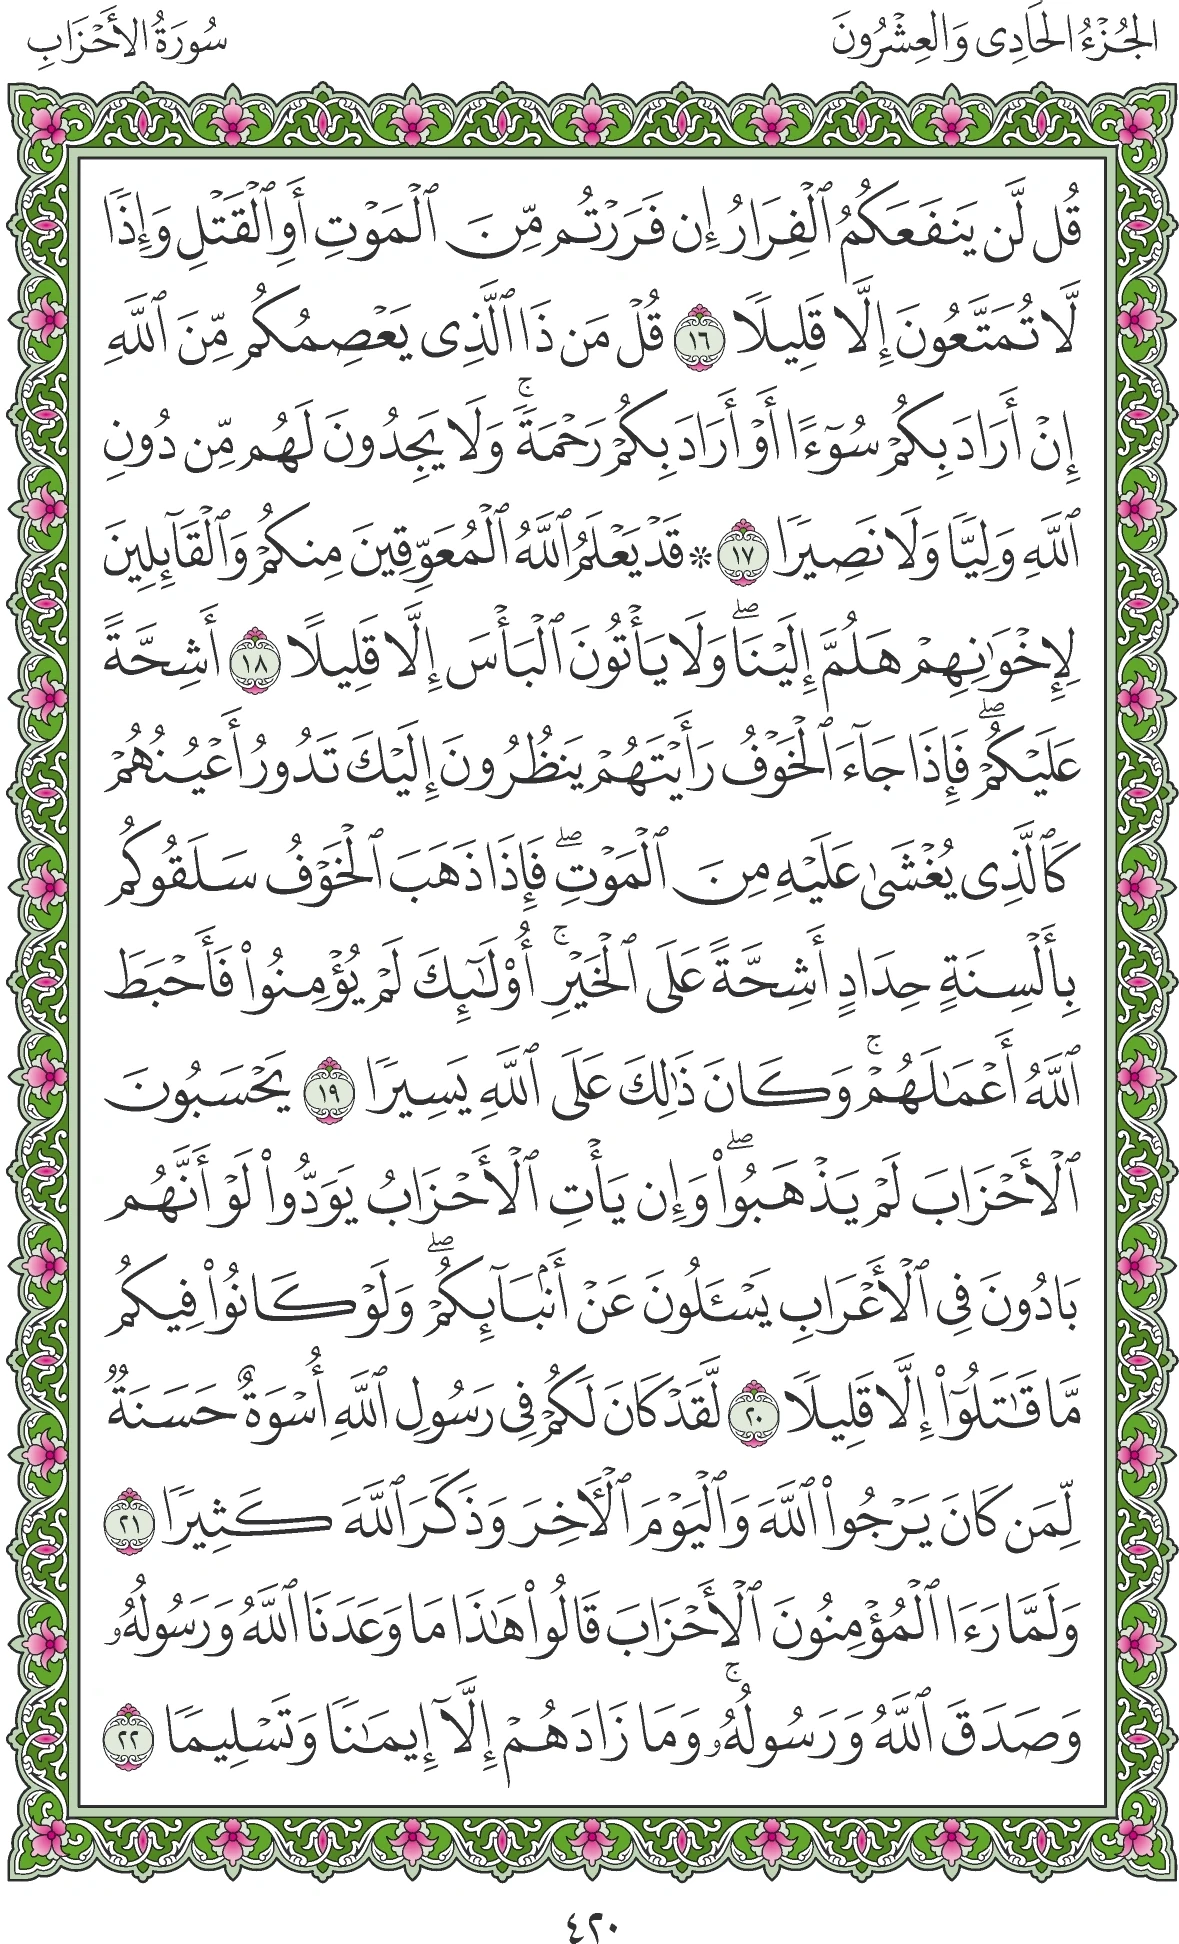 الجُزْءُ الحَادِى وَالعِشْرُونَ
سُورَةُ الأَحْزَابِ
قُل لَّن يَنفَعَكُمُ ٱلْفِرَارُ إِن فَرَرْتُم مِّنَ ٱلْمَوْتِ أَوِ ٱلْقَتْلِ وَإِذًا
لَّا تُمَتَّعُونَ إِلَّا قَلِيلًا ١٦ قُلْ مَن ذَا ٱلَّذِى يَعْصِمُكُم مِّنَ ٱللَّهِ
إِنْ أَرَادَ بِكُمْ سُوٓءًا أَوْ أَرَادَ بِكُمْ رَحْمَةً ۚ وَلَا يَجِدُونَ لَهُم مِّن دُونِ
ٱللَّهِ وَلِيًّا وَلَا نَصِيرًا ١٧ * قَدْ يَعْلَمُ ٱللَّهُ ٱلْمُعَوِّقِينَ مِنكُمْ وَٱلْقَآئِلِينَ
لِإِخْوَٰنِهِمْ هَلُمَّ إِلَيْنَا ۖ وَلَا يَأْتُونَ ٱلْبَأْسَ إِلَّا قَلِيلًا ١٨ أَشِحَّةً
عَلَيْكُمْ ۖ فَإِذَا جَآءَ ٱلْخَوْفُ رَأَيْتَهُمْ يَنظُرُونَ إِلَيْكَ تَدُورُ أَعْيُنُهُمْ
كَٱلَّذِى يُغْشَىٰ عَلَيْهِ مِنَ ٱلْمَوْتِ ۖ فَإِذَا ذَهَبَ ٱلْخَوْفُ سَلَقُوكُم
بِأَلْسِنَةٍ حِدَادٍ أَشِحَّةً عَلَى ٱلْخَيْرِ ۚ أُو۟لَٰٓئِكَ لَمْ يُؤْمِنُوا۟ فَأَحْبَطَ
ٱللَّهُ أَعْمَٰلَهُمْ ۚ وَكَانَ ذَٰلِكَ عَلَى ٱللَّهِ يَسِيرًا ١٩ يَحْسَبُونَ
ٱلْأَحْزَابَ لَمْ يَذْهَبُوا۟ ۖ وَإِن يَأْتِ ٱلْأَحْزَابُ يَوَدُّوا۟ لَوْ أَنَّهُم
بَادُونَ فِى ٱلْأَعْرَابِ يَسْـَٔلُونَ عَنْ أَنۢبَآئِكُمْ ۖ وَلَوْ كَانُوا۟ فِيكُم
مَّا قَٰتَلُوٓا۟ إِلَّا قَلِيلًا ٢٠ لَّقَدْ كَانَ لَكُمْ فِى رَسُولِ ٱللَّهِ أُسْوَةٌ حَسَنَةٌ
لِّمَن كَانَ يَرْجُوا۟ ٱللَّهَ وَٱلْيَوْمَ ٱلْـَٔاخِرَ وَذَكَرَ ٱللَّهَ كَثِيرًا ٢١
وَلَمَّا رَءَا ٱلْمُؤْمِنُونَ ٱلْأَحْزَابَ قَالُوا۟ هَٰذَا مَا وَعَدَنَا ٱللَّهُ وَرَسُولُهُۥ
وَصَدَقَ ٱللَّهُ وَرَسُولُهُۥ ۚ وَمَا زَادَهُمْ إِلَّآ إِيمَٰنًا وَتَسْلِيمًا ٢٢
٤٢٠